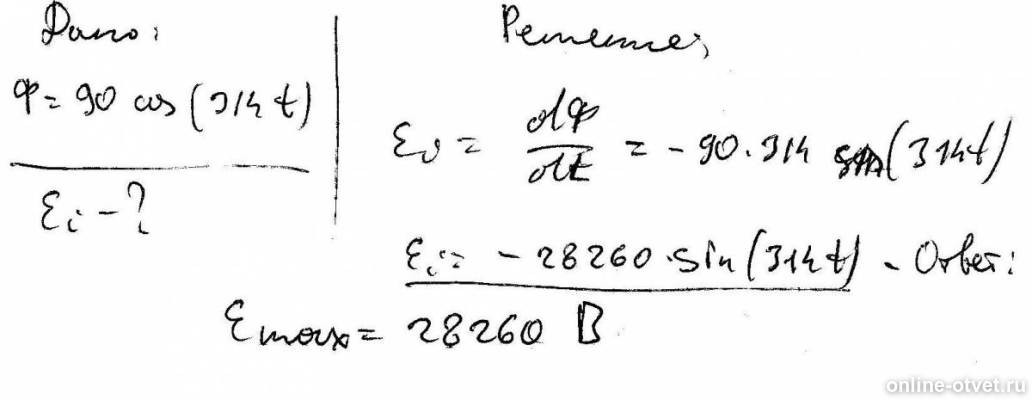 Дано:
Ф = 90 cos (314 t)
εi - ?
Решение:
εi = dФ/dt = - 90 · 314 sin (314t)
εi = - 28260 · sin (314 t) - Ответ:
εmax = 28260 В
online-otvet.ru